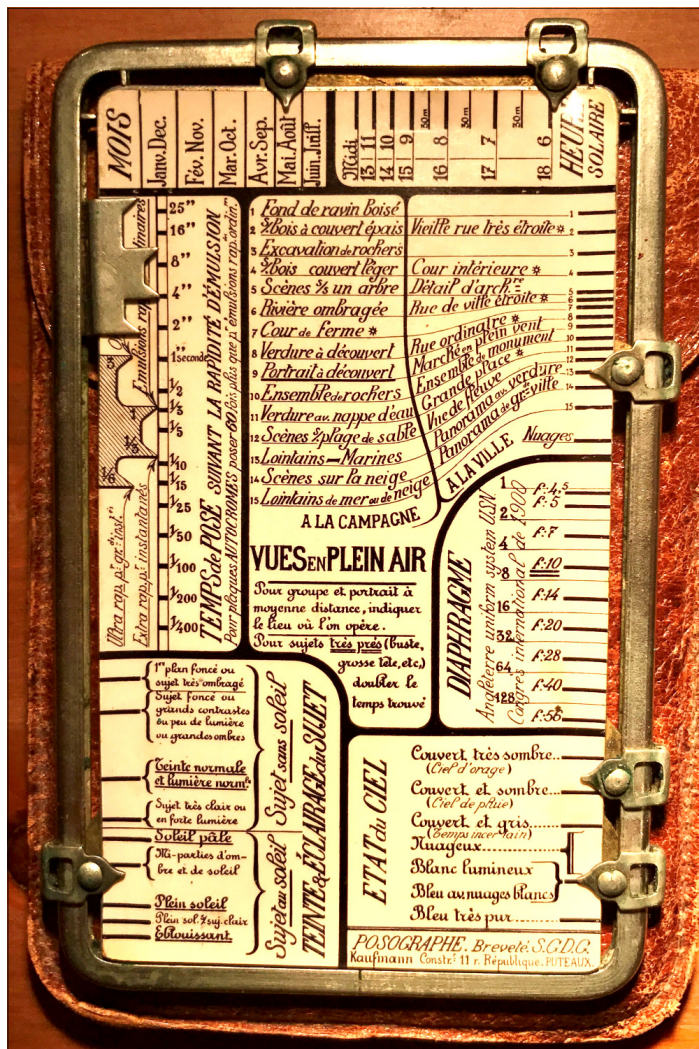 MOIS
Janv. Dec.
Fév. Nov.
Mar. Oct.
Avr. Sep.
Mai. Août
Juin. Juill.
Midi
13 11
14 10
15 9
30m
16 8
30m
17 7
30m
18 6
HEURE
SOLAIRE
25"
16"
8"
4"
2"
1 seconde
1/2
1/3
1/5
1/10
1/15
1/25
1/50
1/100
1/200
1/400
TEMPS de POSE SUIVANT LA RAPIDITÉ D'ÉMULSION
Pour plaques AUTOCHROMES poser 60 fois plus que pr. émulsions rap. ordin.
Ultra rap. pr. gr. inst.
Extra rap. pr. instantanés
1 Fond de ravin Boisé
2 s/Bois à couvert épais
3 Excavation de rochers
4 s/Bois couvert léger
5 Scènes s/s un arbre
6 Rivière ombragée
7 Cour de ferme *
8 Verdure à découvert
9 Portrait à découvert
10 Ensemble de rochers
11 Verdure av. nappe d'eau
12 Scènes s/plage de sable
13 Lointains — Marines
14 Scènes sur la neige
15 Lointains de mer ou de neige
A LA CAMPAGNE
Vieille rue très étroite *
Cour intérieure *
Détail d'archre
Rue de ville étroite *
Rue ordinaire *
Marché en plein vent
Ensemble de monument
Grande place *
Vue de fleuve
Panorama av. verdure
Panorama de gde ville
A LA VILLE
1
2
3
4
5
6
7
8
9
10
11
12
13
14
15
Nuages
VUES EN PLEIN AIR
Pour groupe et portrait à
moyenne distance, indiquer
le lieu où l'on opère.
Pour sujets très près (buste,
grosse tête, etc,)
doubler le
temps trouvé
DIAPHRAGME
Angleterre uniform system USN.
Congrès international de 1900
1
2
4
8
16
32
64
128
f:4.5
f:5
f:7
f:10
f:14
f:20
f:28
f:40
f:56
1er plan foncé ou
sujet très ombragé
Sujet foncé ou
grands contrastes
ou peu de lumière
ou grandes ombres
Teinte normale
et lumière norm.le
Sujet très clair ou
en forte lumière
Soleil pâle
Mi-parties d'om-
bre et de soleil
Plein soleil
Plein sol. & suj. clair
Eblouissant
Sujet sans soleil
Sujet au soleil
TEINTE & ÉCLAIRAGE du SUJET
ETAT du CIEL
Couvert très sombre..
(Ciel d'orage)
Couvert et sombre...
(Ciel de pluie)
Couvert et gris....
(Temps incertain)
Nuageux
Blanc lumineux
Bleu av. nuages blancs
Bleu très pur
POSOGRAPHE. Breveté. S.G.D.G.
Kaufmann Constr. 11 r. République. PUTEAUX.